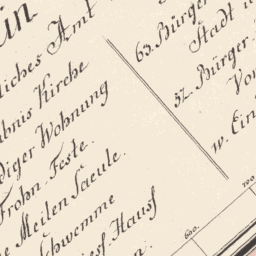 in
liches Amt
bnis Kirche
diger Wohnung
Frohn-Feste.
e Meilen Saeule.
chwemme
Hausf
63. Bürger
Stadt
52. Bürger
Vor
w. Ein
600.
700